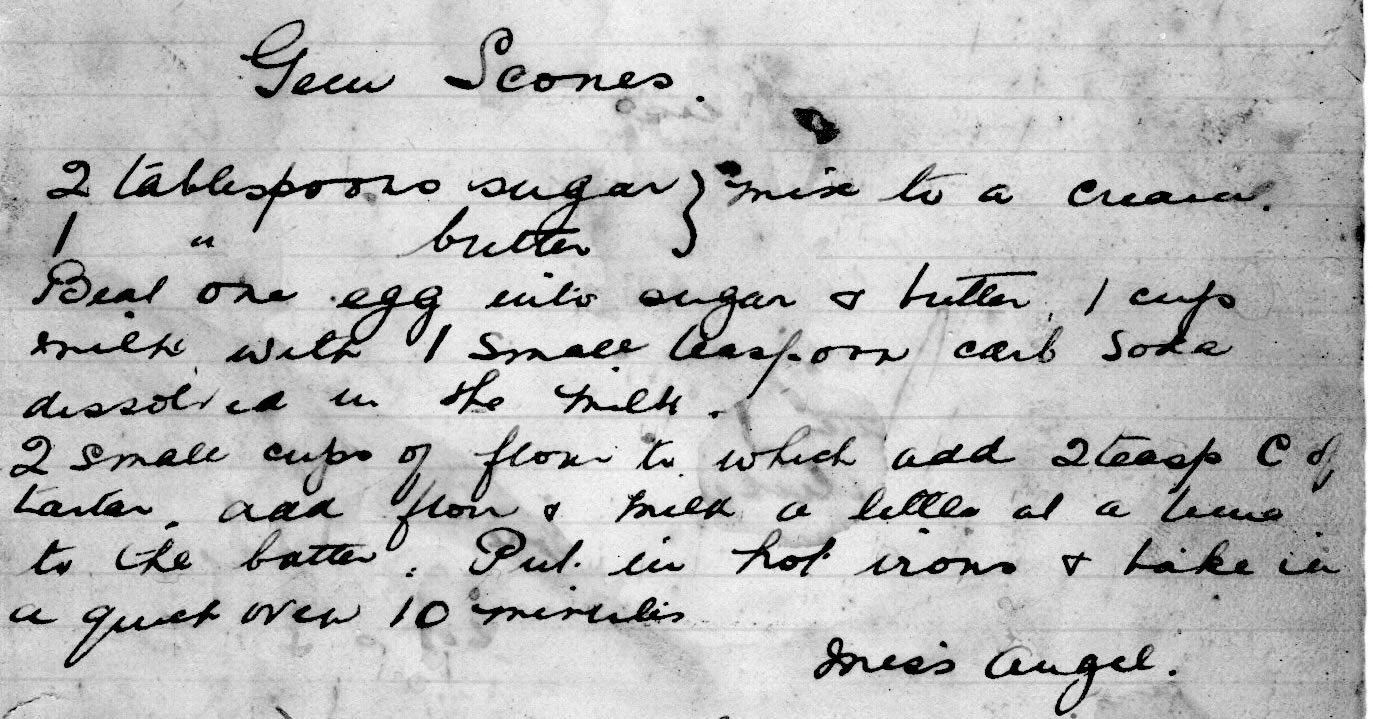 Gem Scones.
2 tablespoons sugar } mix to a cream.
1 " butter }
Beat one egg into sugar & butter, 1 cup
milk with 1 small teaspoon carb soda
dissolved in the milk.
2 small cups of flour to which add 2 teasp C of
tartar, add flour & milk a little at a time
to the batter. Put in hot irons & bake in
a quick oven 10 minutes
Miss Angel.